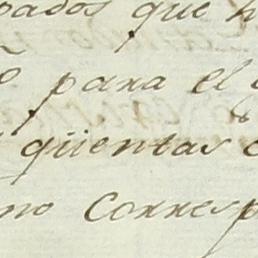 pados que h
para el
qüentas
no Corresp